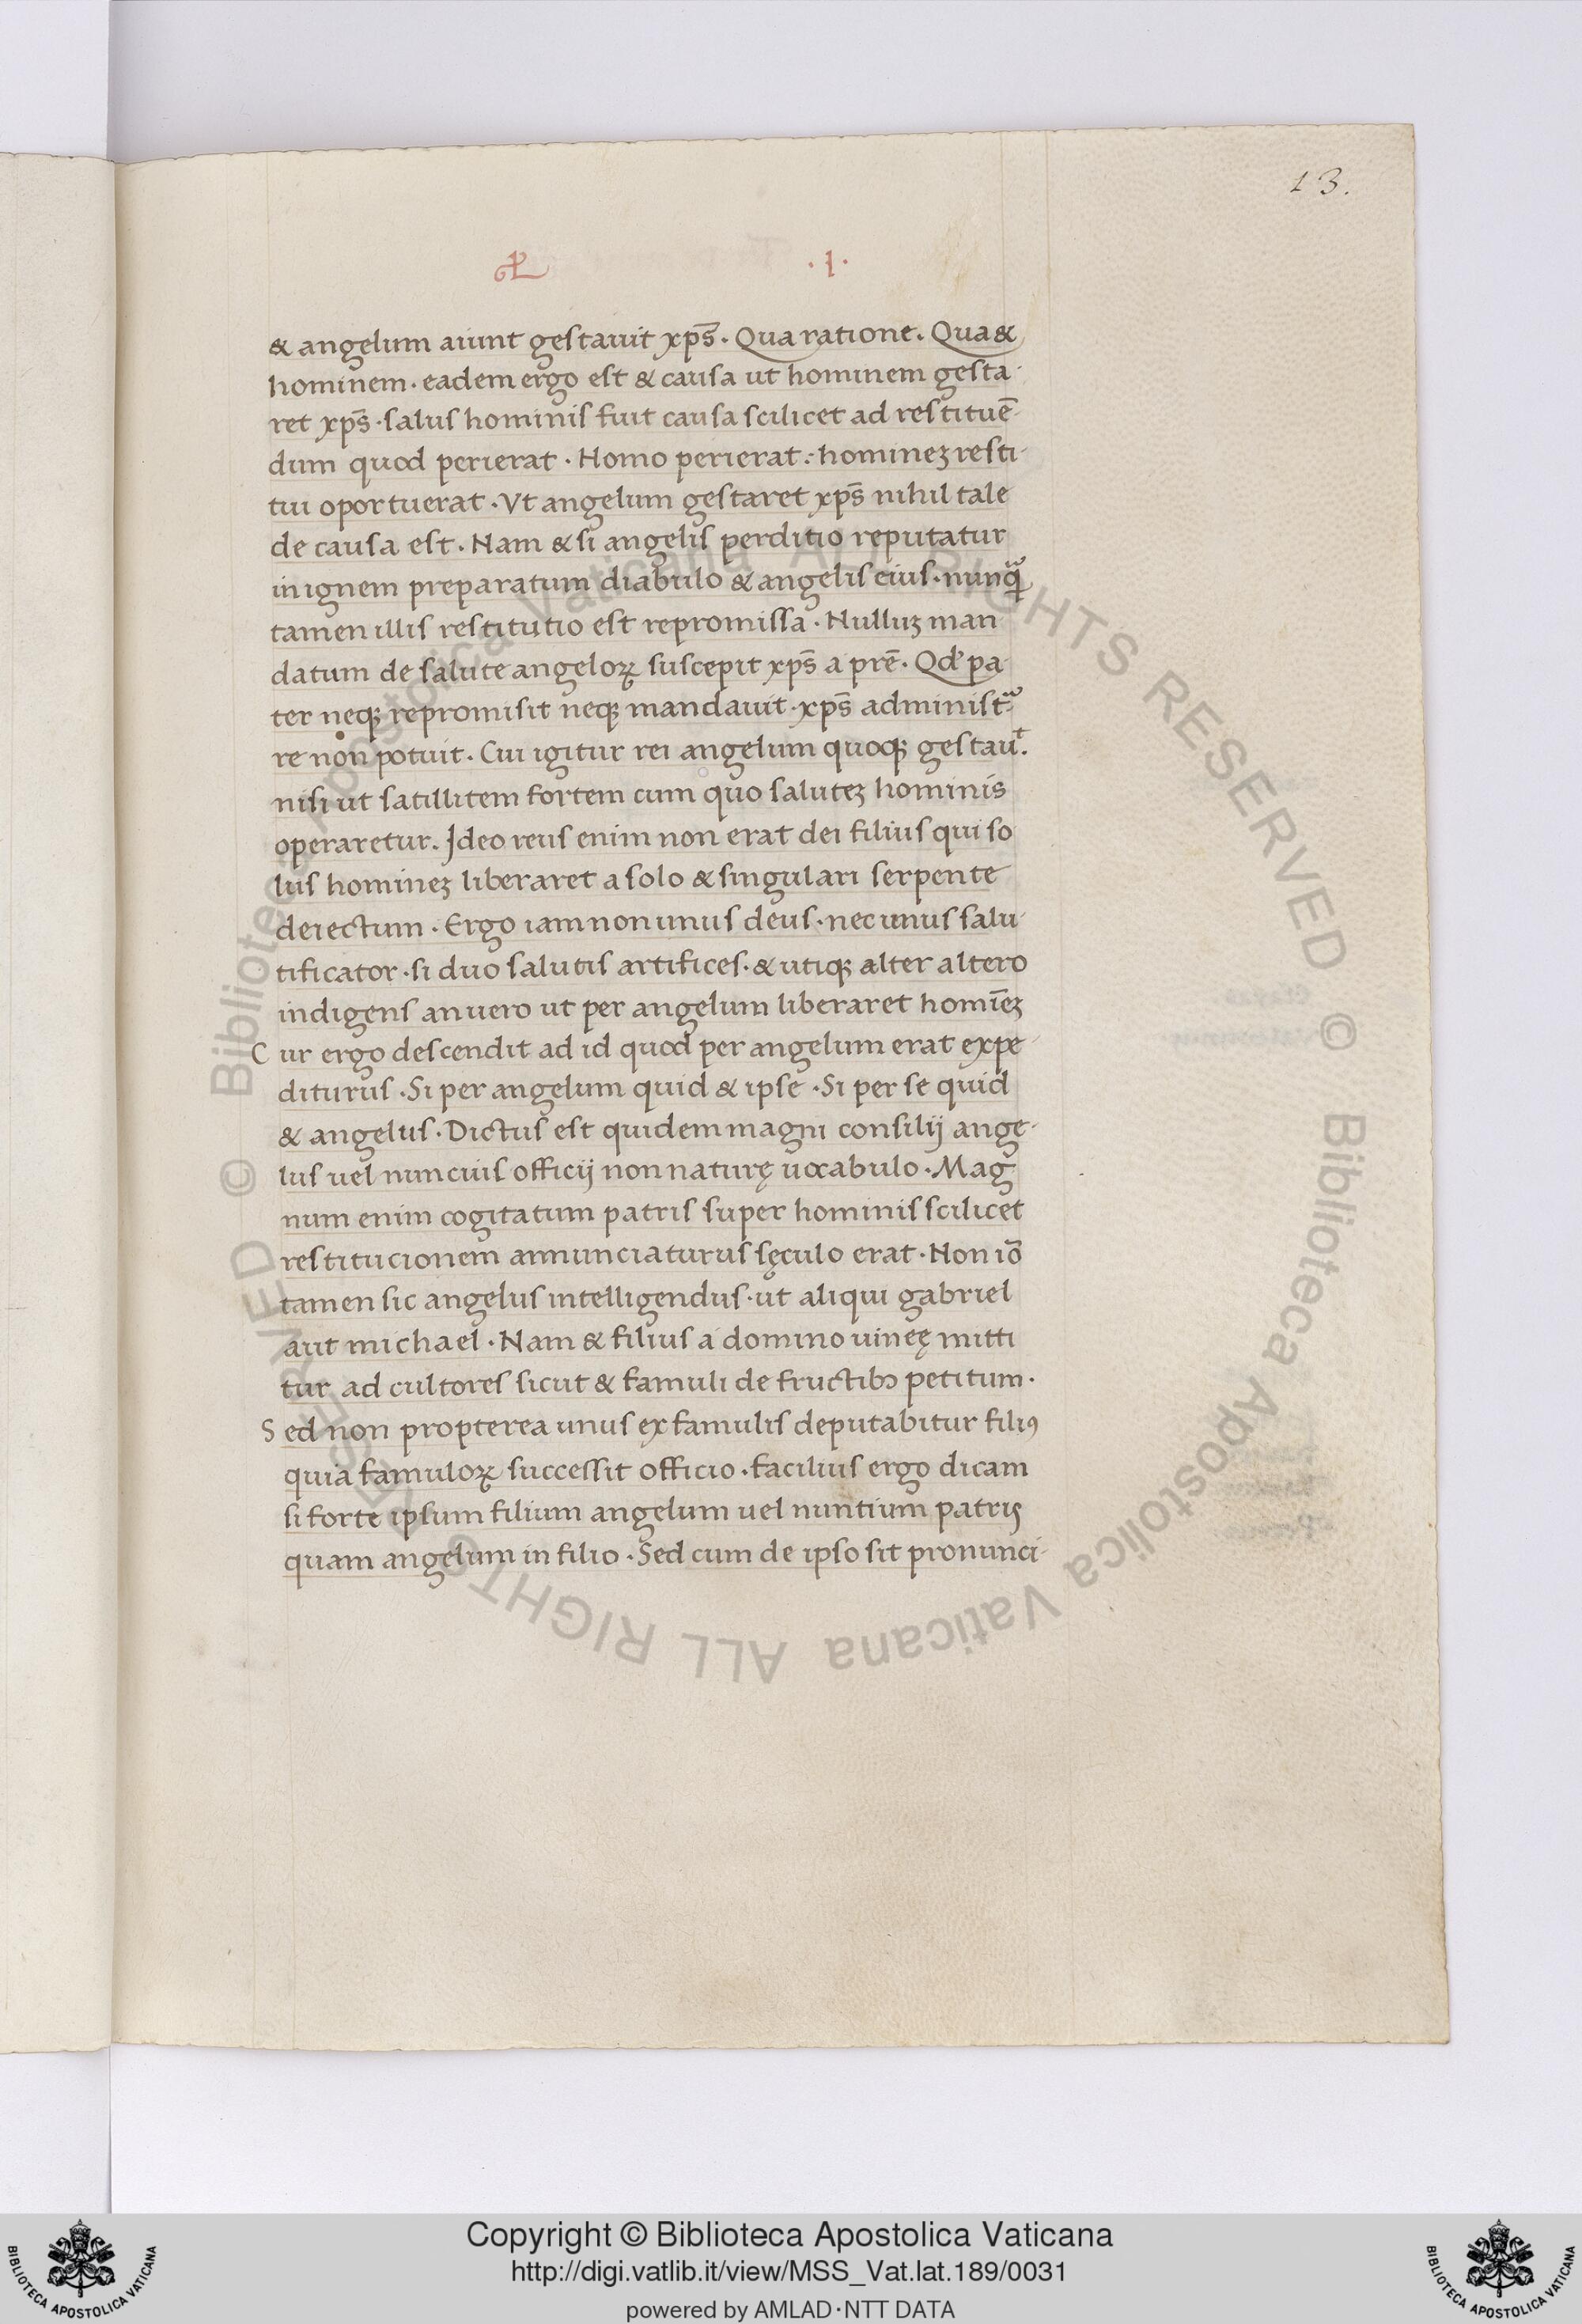 13.
.I.
& angelum aiunt gestauit xp̄s. Qua ratione. Qua &
hominem. eadem ergo est & causa ut hominem gesta-
ret xp̄s. salus hominis fuit causa scilicet ad restituē-
dum quod perierat. Homo perierat: homineꝫ resti-
tui oportuerat. Vt angelum gestaret xp̄s nihil tale
de causa est. Nam & si angelis perditio reputatur
in ignem preparatum diabulo & angelis eius. nunqᷓ
tamen illis restitutio est repromissa. Nulluꝫ man-
datum de salute angeloꝝ suscepit xp̄s a prē. Qd' pa-
ter neqꝫ repromisit neqꝫ mandauit. xp̄s administᷓ-
re non potuit. Cui igitur rei angelum quoqꝫ gestauͭ.
nisi ut satillitem fortem cum quo saluteꝫ hominis
operaretur. Ideo reus enim non erat dei filius qui so
lus homineꝫ liberaret a solo & singulari serpente
deiectum. Ergo iam non unus deus. nec unus salu-
tificator. si duo salutis artifices. & utiqꝫ alter altero
indigens an uero ut per angelum liberaret homīeꝫ
Cur ergo descendit ad id quod per angelum erat expe-
diturus. Si per angelum quid & ipse. Si per se quid
& angelus. Dictus est quidem magni consilij ange-
lus uel nuncius officij non naturę uocabulo. Mag
num enim cogitatum patris super hominis scilicet
restitucionem annunciaturus sęculo erat. Non iō
tamen sic angelus intelligendus. ut aliqui gabriel
aut michael. Nam & filius a domino uineę mitti
tur ad cultores sicut & famuli de fructibꝫ petitum.
Sed non propterea unus ex famulis deputabitur filiꝰ
quia famuloꝝ successit officio. facilius ergo dicam
si forte ipsum filium angelum uel nuntium patris
quam angelum in filio. Sed cum de ipso sit pronunci-
© Biblioteca Apostolica Vaticana ALL RIGHTS RESERVED
© Biblioteca Apostolica Vaticana ALL RIGHTS RESERVED
Copyright © Biblioteca Apostolica Vaticana
http://digi.vatlib.it/view/MSS_Vat.lat.189/0031
powered by AMLAD·NTT DATA
BIBLIOTECA APOSTOLICA VATICANA
BIBLIOTECA APOSTOLICA VATICANA